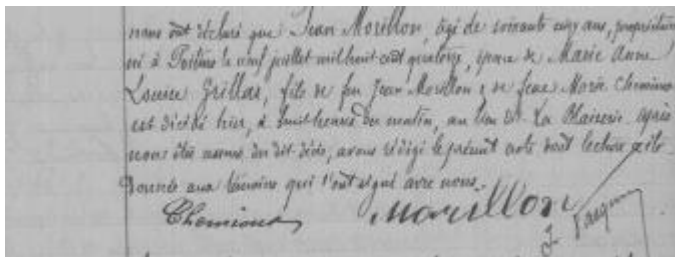 nous ont déclaré que Jean Morillon, âgé de soixante cinq ans, propriétaire
né à Poitiers le neuf juillet mil huit cent quatorze, époux de Marie Anne
Louise Grillas, fils de feu Jean Morillon & de feue Marie Chemioux
est décédé hier, à huit heures du matin, au lieu dit La Blaiserie. Après
nous être assurés du dit décès, avons rédigé le présent acte dont lecture a été
donnée aux témoins qui l'ont signé avec nous.
Chemioux Morillon